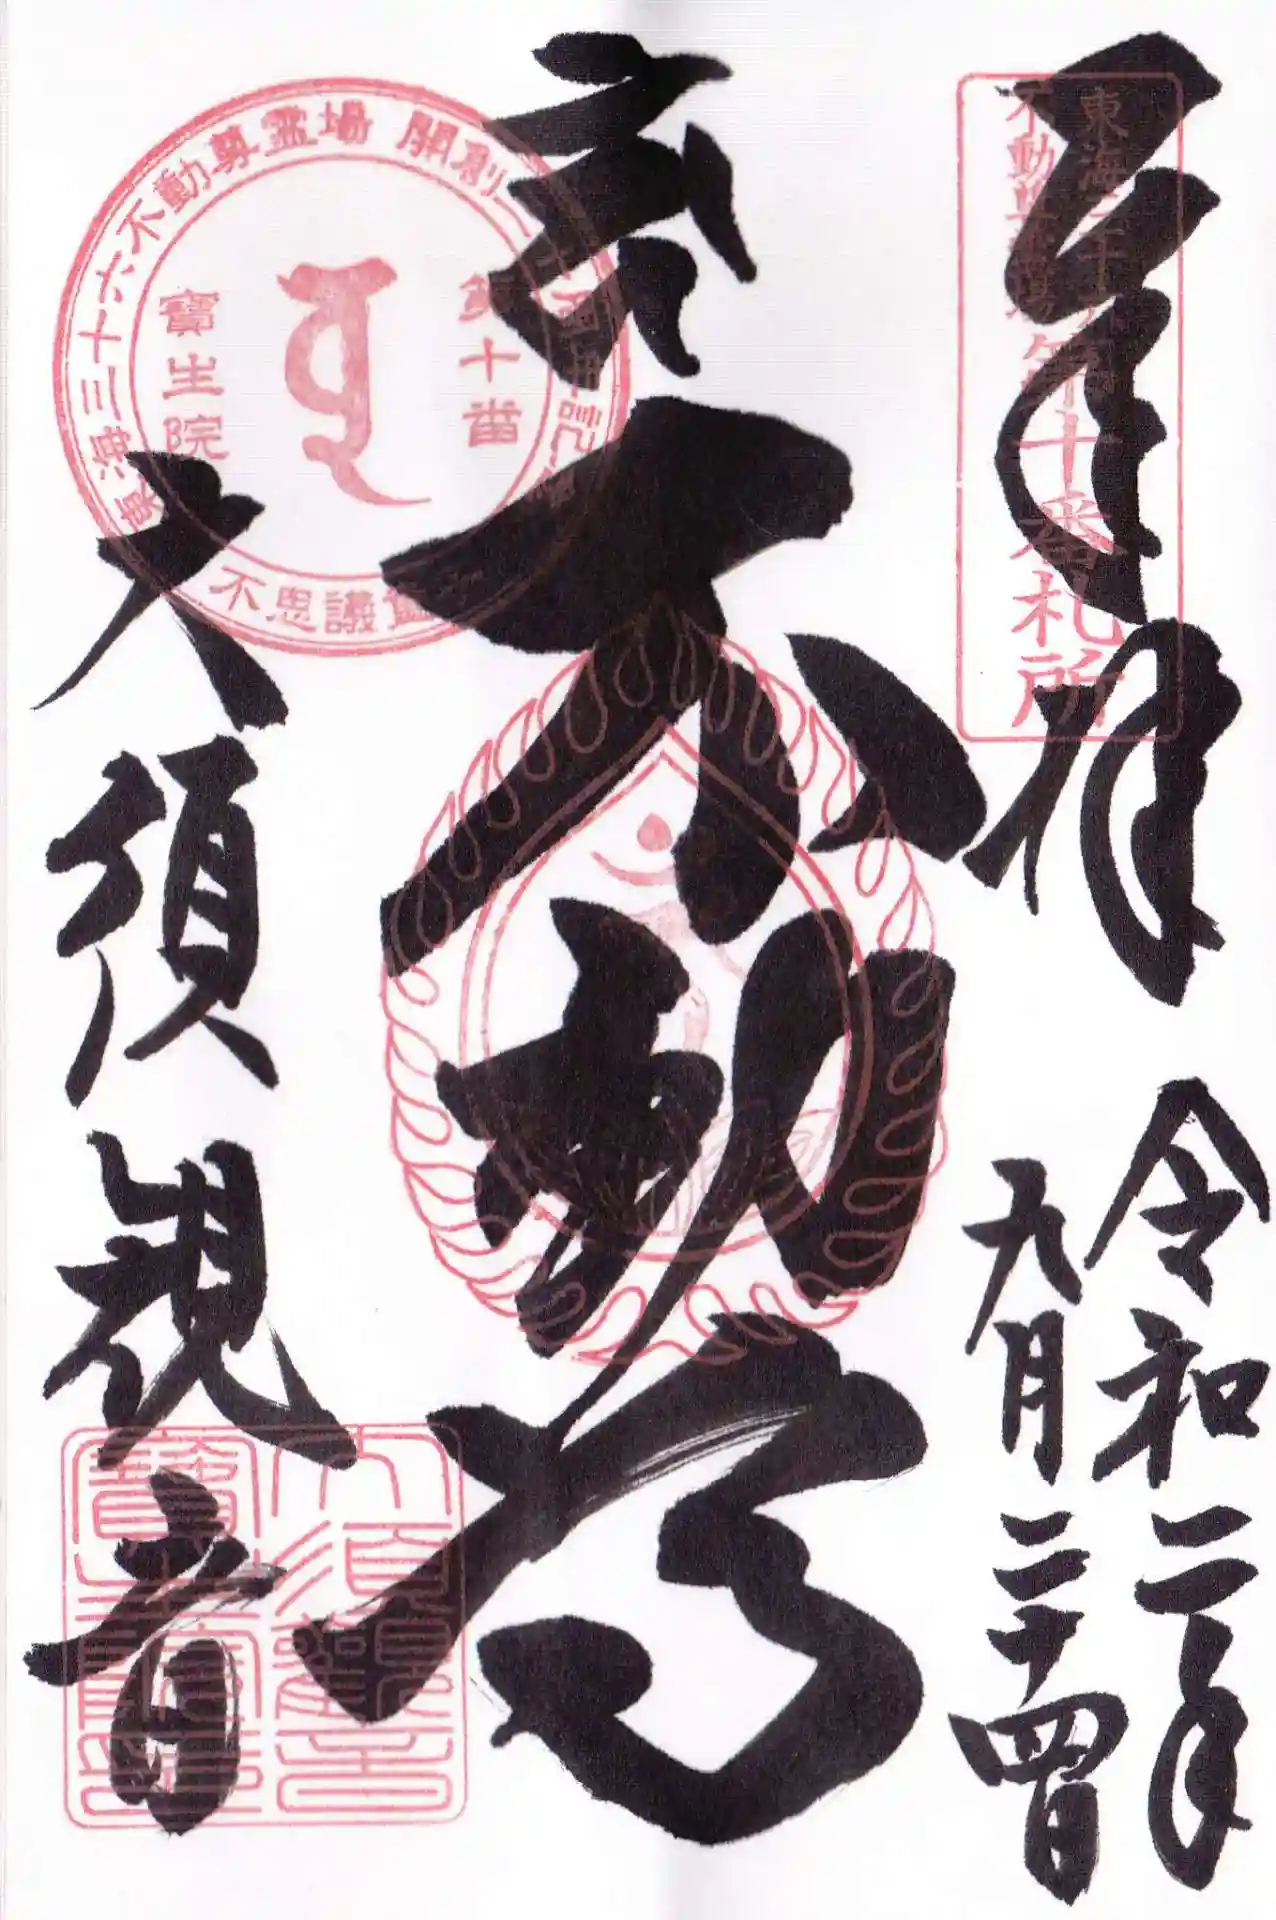 奉拝
令和二年
九月二十四日
東海三十六
不動尊霊場
第十番札所
不動尊
東海三十六不動尊霊場 開創
第十番
寶生院
不思議
大須観音